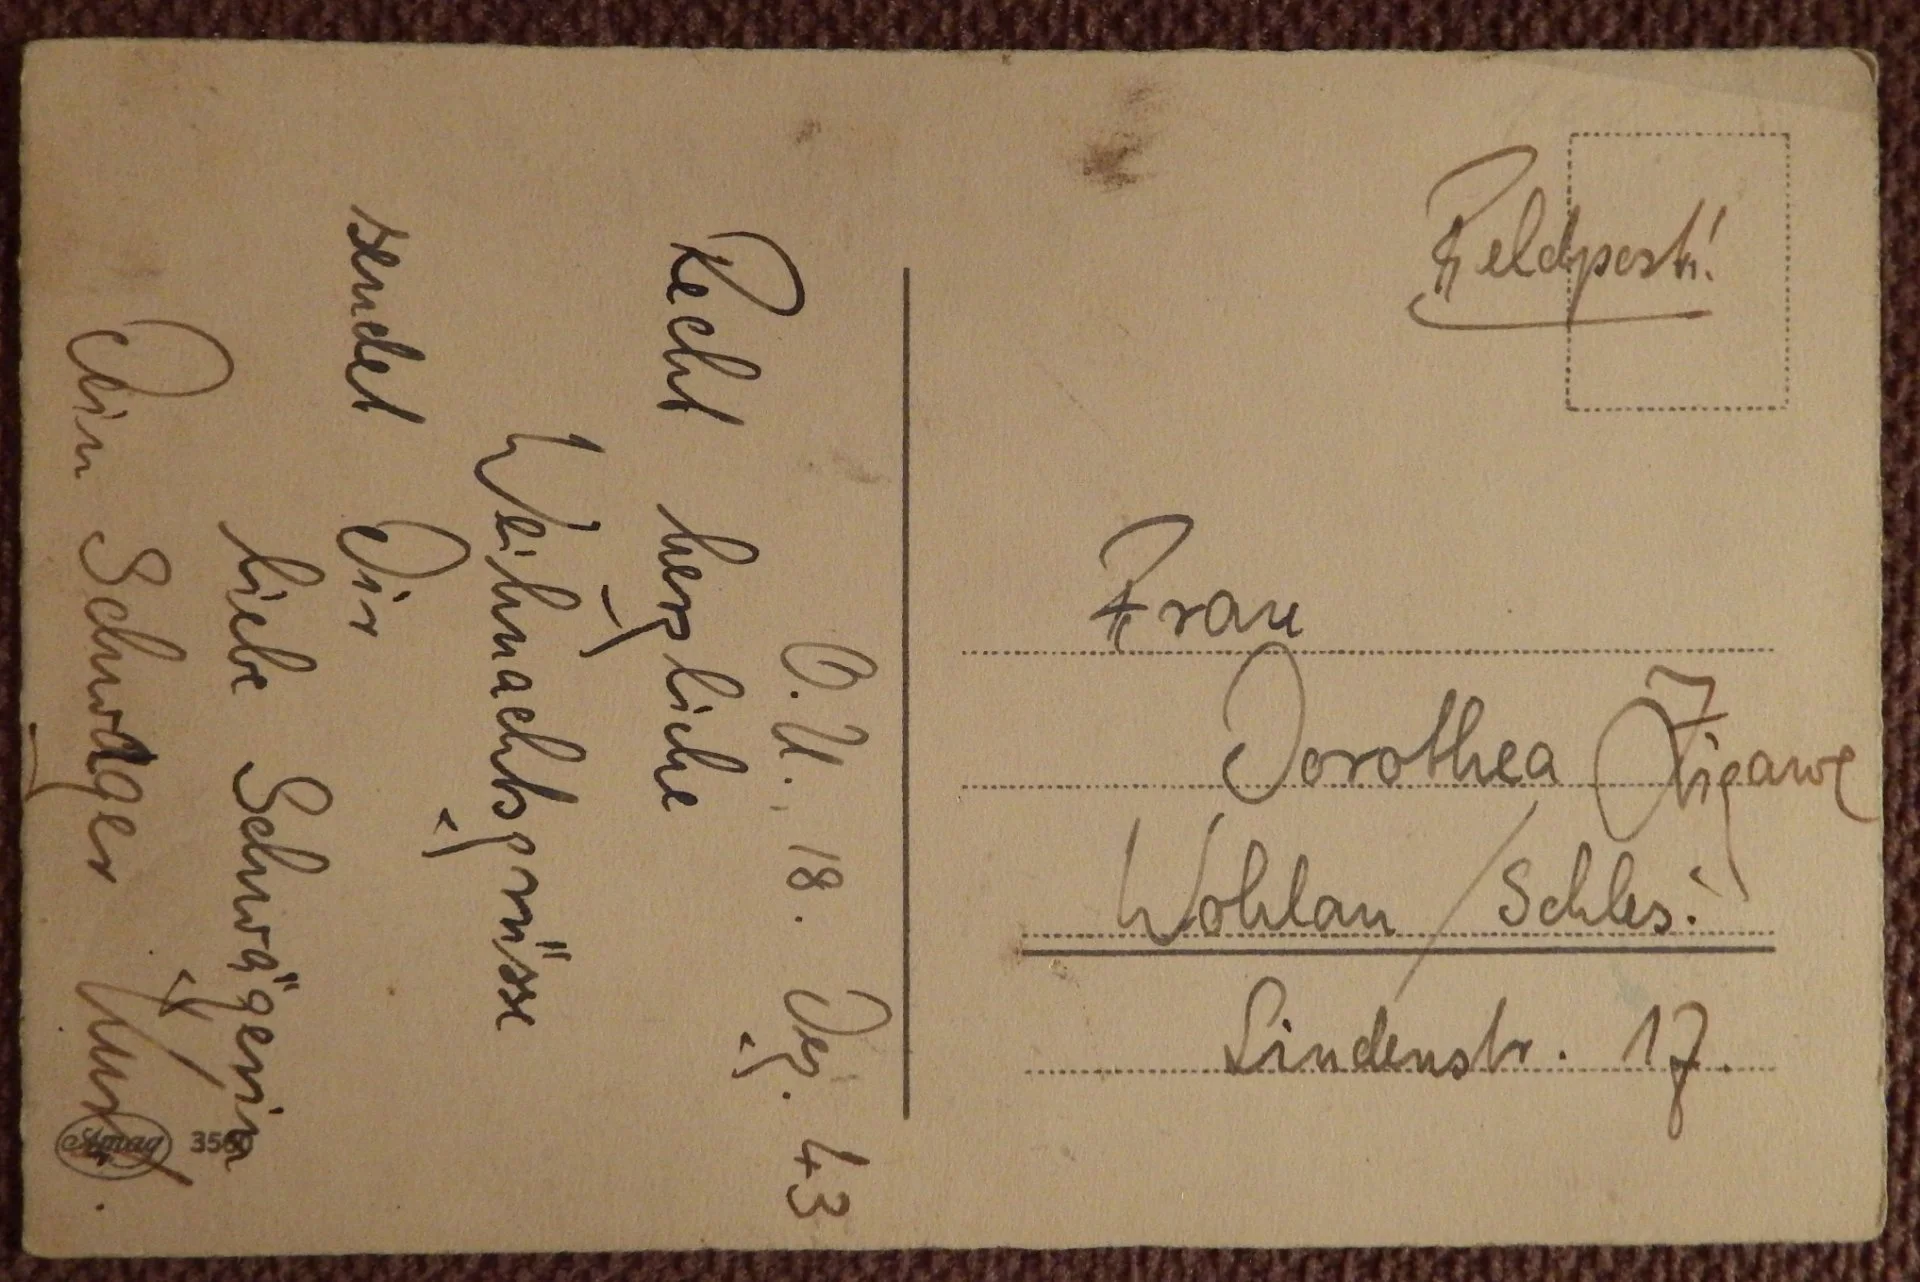 Feldpost!
Frau
Dorothea
Wohlan / Schles.
Lindenstr. 17.
O.U., 18. Dez. 43
Recht herzliche
Weihnachtsgrüsse
sendet Dir
liebe Schwägerin
Dein Schwager Kurt.
Amag